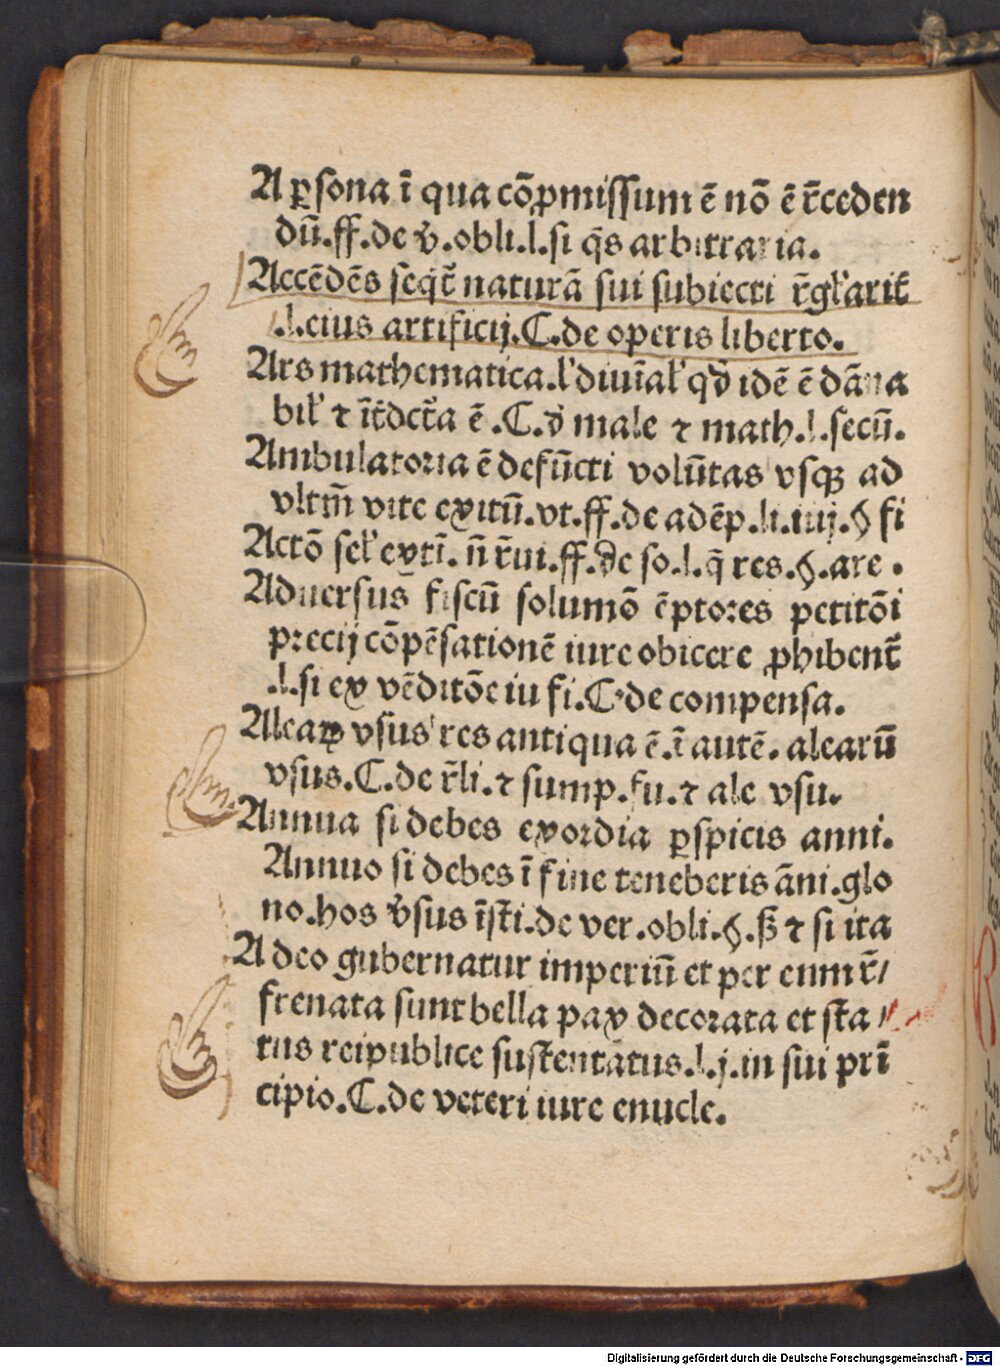 A ꝑsona ī qua cōꝓmissum ē nō ē r̄ceden
dū.ff.de v̄.obli.l.si q̄s arbitraria.
Accēdēs seqt̄ naturā sui subiecti r̄gl'arit̄
.l.eius artificij.C.de operis liberto.
Ars mathematica.l'diuīal' qd̄ idē ē dāna
bil' ⁊ īt̄dct̄a ē .C.d̄ male ⁊ math.l.secū.
Ambulatoria ē defūcti volūtas vsqꝫ ad
vltm̄ vite exitū.vt.ff.de adēp.li.iiij.§ fi
Actō sel' extī. n̄ r̄ui.ff.de so.l.q̄ res.§.are .
Aduersus fiscū solumō ēptores petitōi
precij cōpēsationē iure obicere ꝓhibent̄
.l.si ex vēditōe iu fi.C.de compensa.
Aleaꝝ vsus res antiqua ē.ī autē. alearū
vsus.C.de r̄li.⁊ sump.fu.⁊ ale vsu.
Annua si debes exordia ꝑspicis anni.
Annuo si debes ī fine teneberis āni.glo
no.hos v̄sus īsti.de ver.obli.§.ß ⁊ si ita
A deo gubernatur imperiū et per eum r̄/
frenata sunt bella pax decorata et sta /
tus reipublice sustentatus.l.j.in sui prī
cipio.C.de veteri iure enucle.
Digitalisierung gefördert durch die Deutsche Forschungsgemeinschaft - DFG